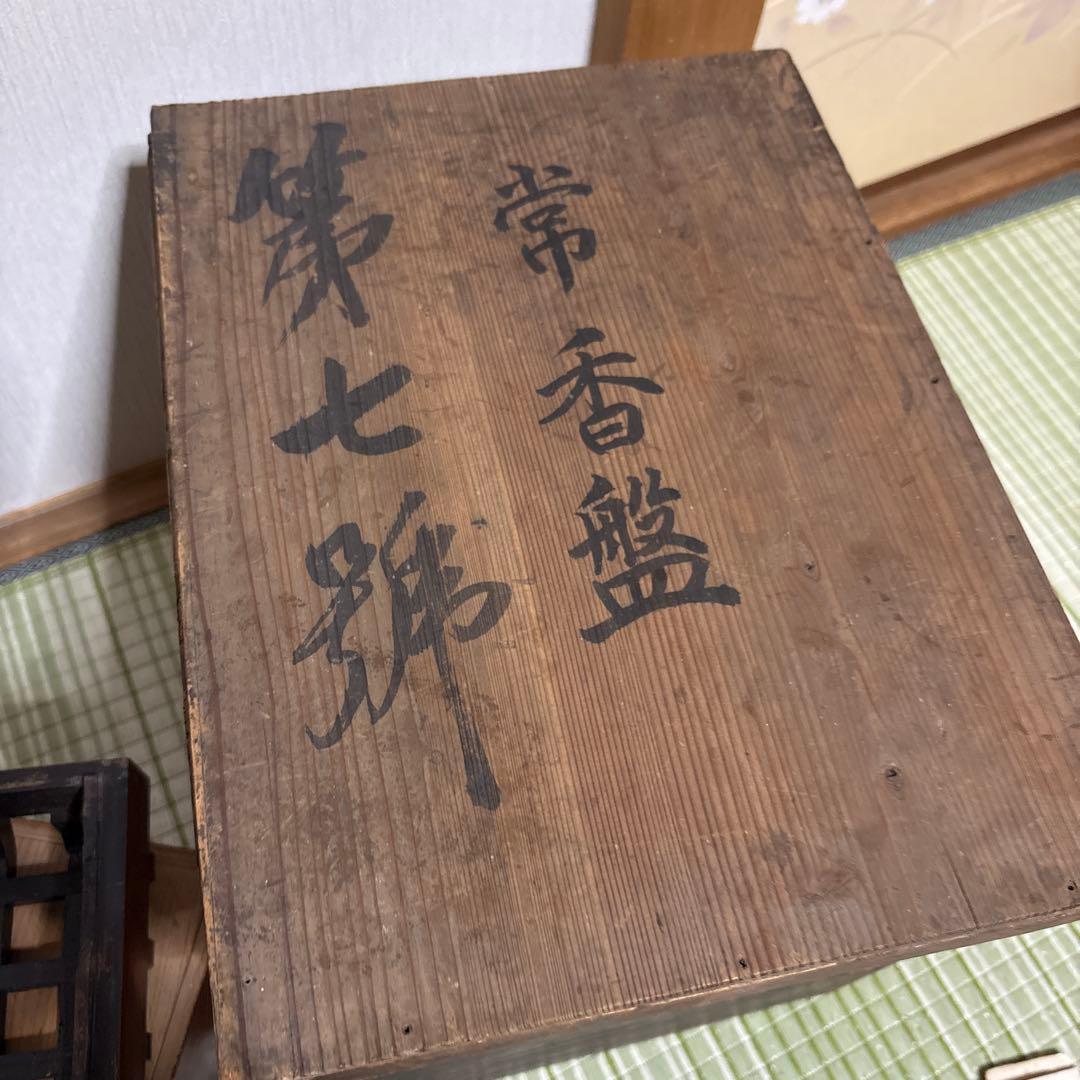 常香盤
第七號